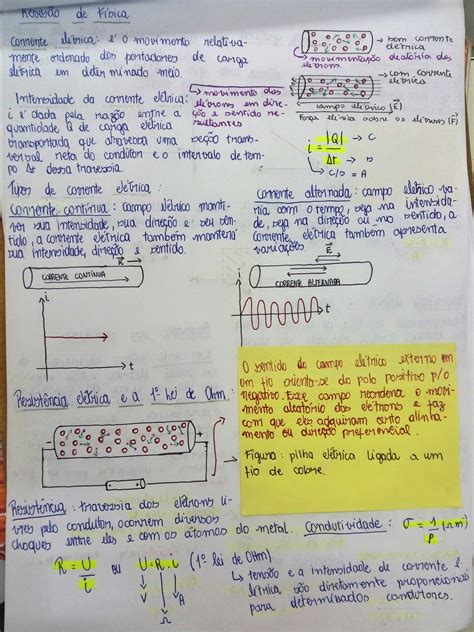 Revisão de Física
Corrente elétrica: é o movimento relativa-
mente ordenado dos portadores de carga
elétrica em determinado meio.
→ sem corrente
elétrica
→ movimentação aleatória dos
elétrons.
→ com corrente
elétrica
campo elétrico (E)
Força elétrica sobre os elétrons (F)
→ movimento dos
elétrons em dire-
ção e sentido re-
sultantes
Intensidade da corrente elétrica:
i é dada pela razão entre a
quantidade Q de carga elétrica
transportada que atravessa uma seção trans-
versal reta do condutor e o intervalo de tem-
po Δt dessa travessia.
i = |Q| → C
Δt → s
↳ C/s = A
Tipos de corrente elétrica:
Corrente contínua: campo elétrico manti-
ver sua intensidade, sua direção e seu sen-
tido, a corrente elétrica também manterá
sua intensidade, direção e sentido.
E
CORRENTE CONTÍNUA
i
t
Corrente alternada: campo elétrico va-
ria com o tempo, seja na intensida-
de, seja na direção ou no sentido, a
corrente elétrica também apresenta
variações.
E
CORRENTE ALTERNADA
i
t
Resistência elétrica e a 1ª lei de Ohm
O sentido do campo elétrico externo em
um fio orienta-se do polo positivo p/ o
negativo. Esse campo reordena o mo-
vimento aleatório dos elétrons e faz
com que eles adquiram certo alinha-
mento ou direção preferencial.
Figura: pilha elétrica ligada a um
fio de cobre.
Resistência: travessia dos elétrons li-
vres pelo condutor, ocorrem diversos
choques entre eles e com os átomos do metal.
Condutividade: σ = 1
ρ (Ω.m)
R = U
i
ou U = R . i (1ª lei de Ohm)
V Ω A
↳ tensão e a intensidade de corrente e-
létrica são diretamente proporcionais
para determinados condutores.